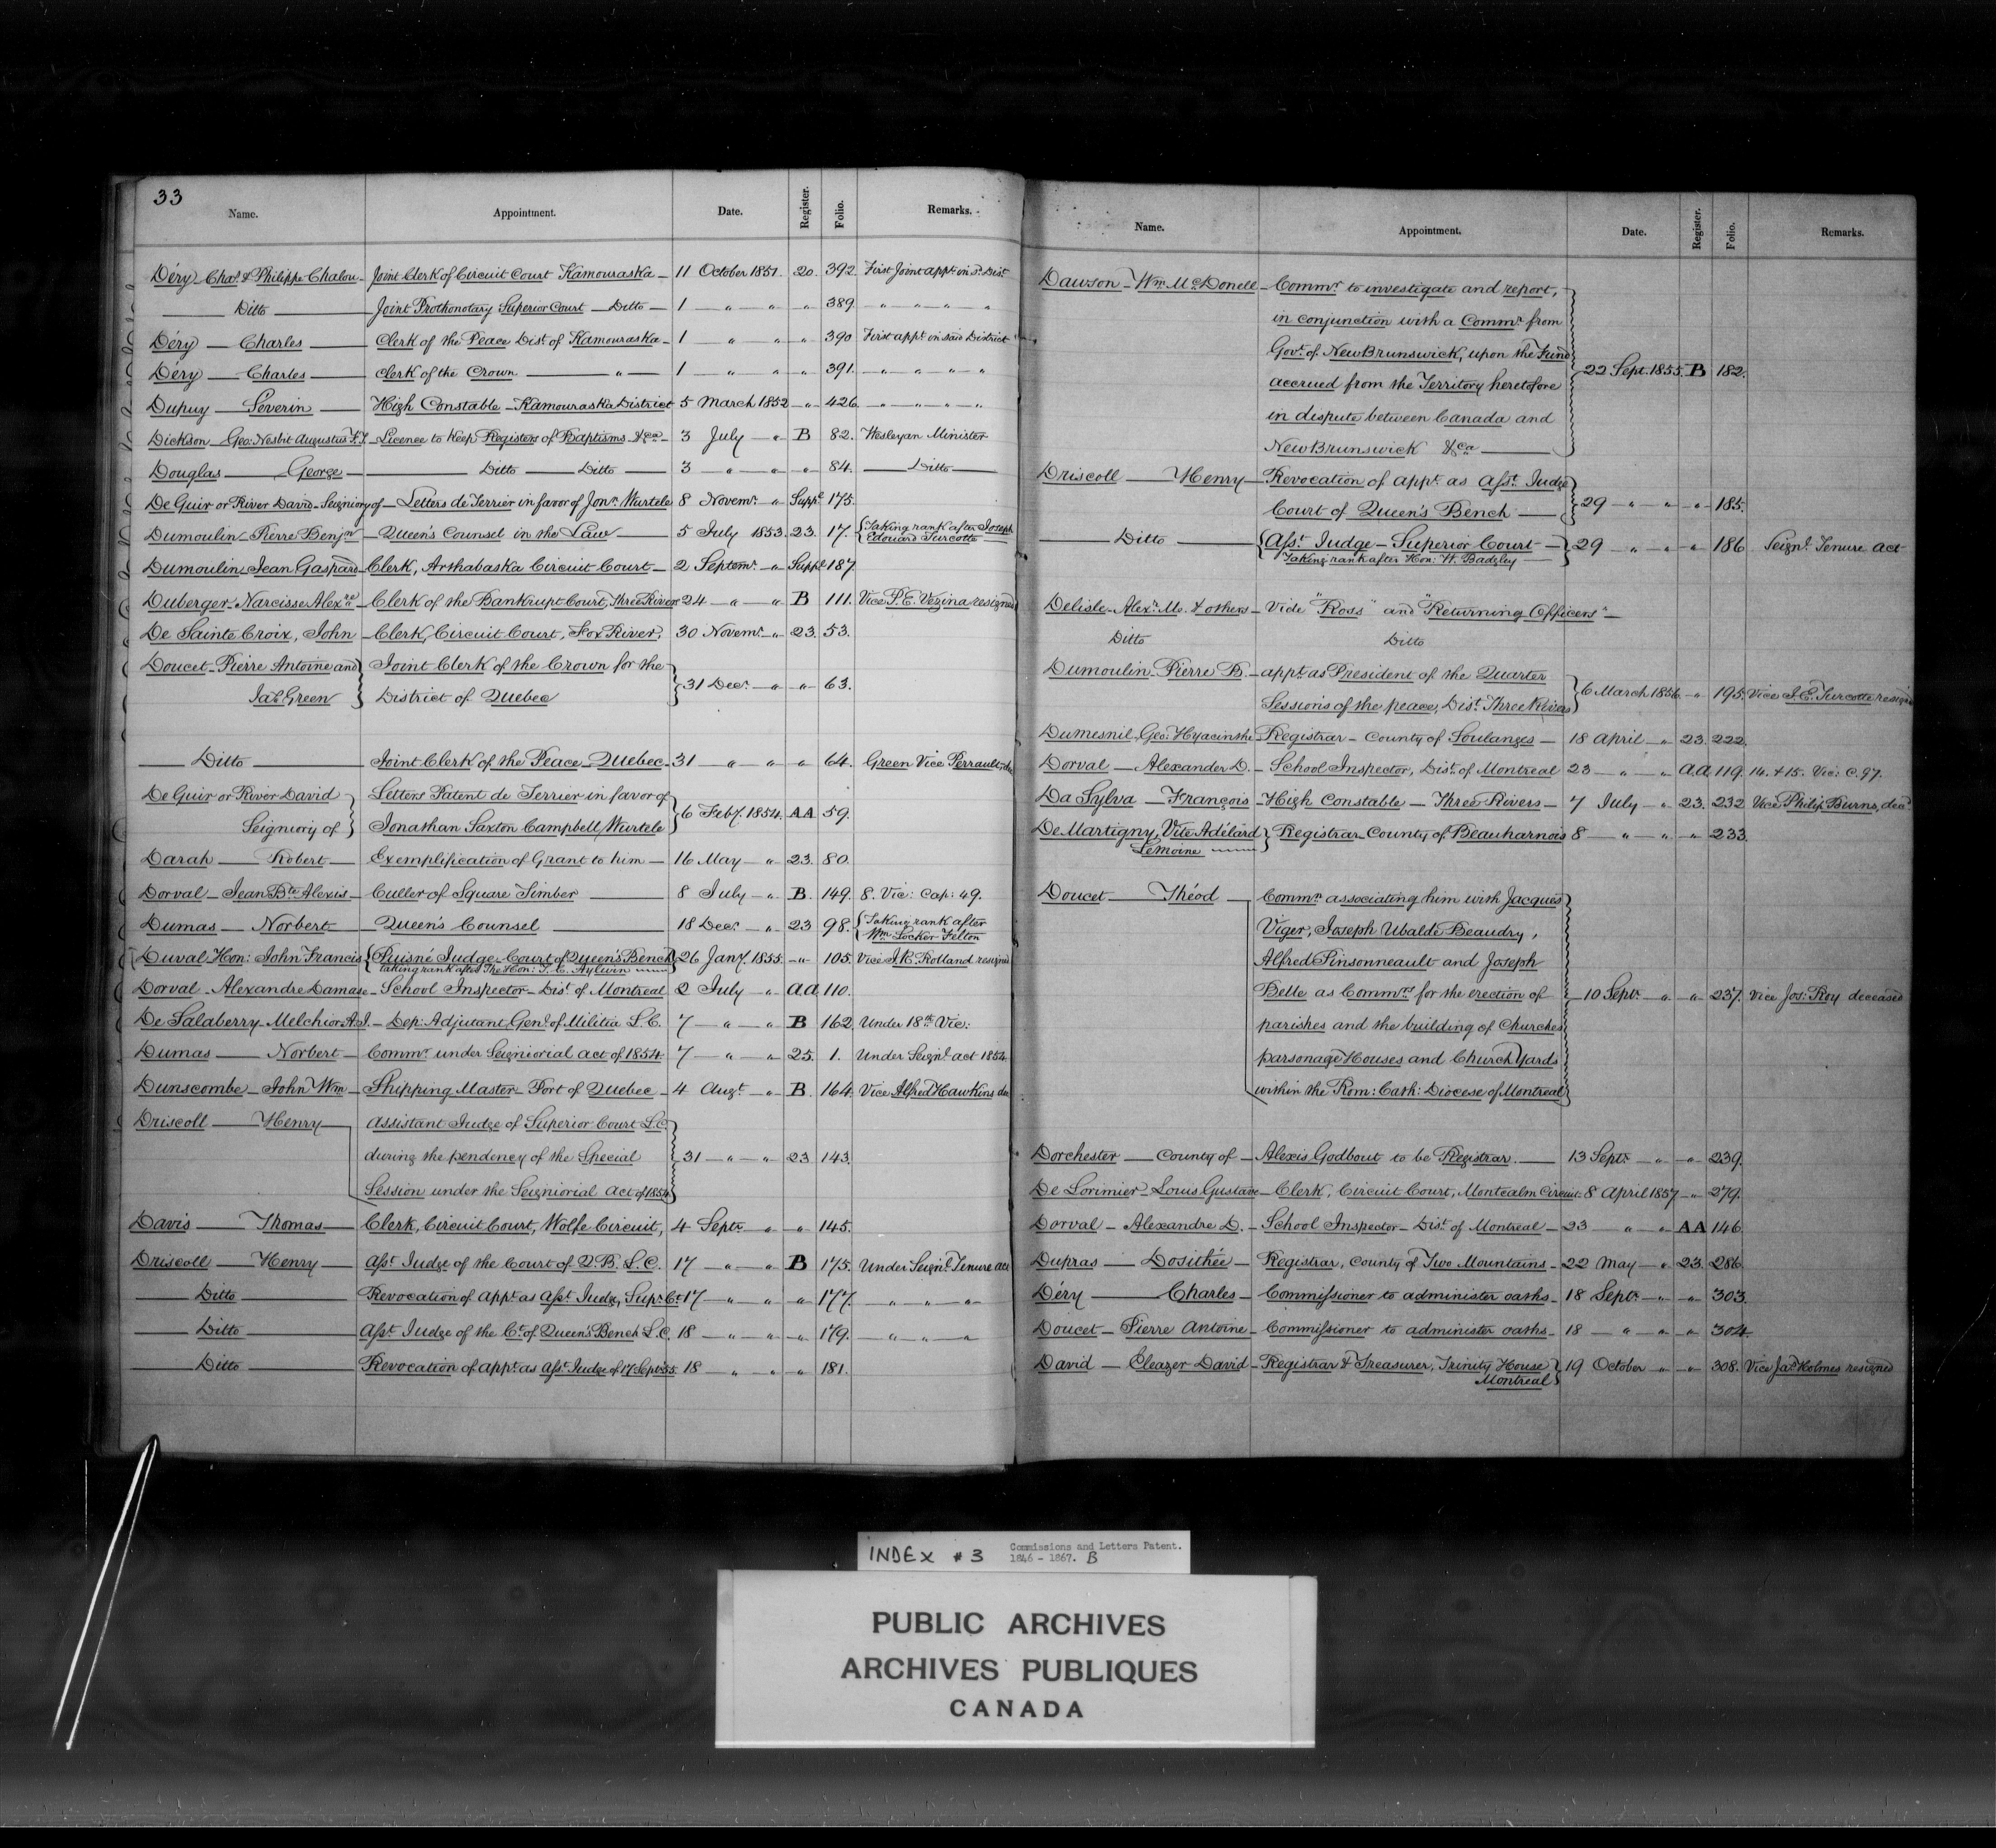 33
Name. Appointment. Date. Register. Folio. Remarks.
Déry Chas. & Philippe Chalou Joint Clerk of Circuit Court Kamouraska 11 October 1851. 20. 392. First Joint appt. in sd. Dist.
Ditto Joint Prothonotary Superior Court Ditto 1 " " " 389 " " " "
Déry Charles Clerk of the Peace Dist. of Kamouraska 1 " " " 390 First appt. in said District
Déry Charles Clerk of the Crown " 1 " " " 391. " " " "
Dupuy Severin High Constable Kamouraska District 5 March 1852 " 426. " " " "
Dickson Geo: Nesbit Augustus F. T. Licence to keep Registers of Baptisms &ca 3 July " B 82. Wesleyan Minister
Douglas George Ditto Ditto 3 " " " 84. Ditto
De Guir or River David Seigniory of Letters de Terrier in favor of Jonn. Wurtele 8 Novemr. " Suppl 175.
Dumoulin Pierre Benjn Queen's Counsel in the Law 5 July 1853. 23. 17. Taking rank after Joseph
Edouard Turcotte
Dumoulin Jean Gaspard Clerk, Arthabaska Circuit Court 2 Septemr. " Suppl 187
Duberger Narcisse Alexre Clerk of the Bankrupt Court, Three Rivers 24 " " B 111. Vice P. E. Vezina resigned
De Sainte Croix, John Clerk, Circuit Court, Fox River, 30 Novemr. " 23. 53.
Doucet Pierre Antoine and Joint Clerk of the Crown for the
Jas. Green District of Quebec 31 Decr. " " 63.
Ditto Joint Clerk of the Peace Quebec 31 " " " 64. Green Vice Perrault, de
De Guir or River David Letters Patent de Terrier in favor of
Seigniory of Jonathan Saxton Campbell Wurtele 6 Feby. 1854. AA 59.
Darah Robert Exemplification of Grant to him 16 May " 23. 80.
Dorval Jean Bte Alexis Culler of Square Timber 8 July " B. 149. 8. Vic: Cap: 49.
Dumas Norbert Queen's Counsel 18 Decr. " 23 98. Taking rank after
Wm Locker Felton
Duval Hon: John Francis Puisné Judge Court of Queen's Bench 26 Jany. 1855. " 105. Vice J. R. Rolland resigned
taking rank after The Hon: T. C. Aylwin
Dorval Alexandre Damase School Inspector Dist. of Montreal 2 July " AA 110.
De Salaberry Melchior A. I. Dep: Adjutant Genl. of Militia L. C. 7 " " B 162 Under 18th. Vic:
Dumas Norbert Commr. under Seigniorial act of 1854. 7 " " 25. 1. Under Seignl. act 1854.
Dunscombe John Wm Shipping Master Port of Quebec 4 Augt. " B. 164. Vice Alfred Hawkins de
Driscoll Henry Assistant Judge of Superior Court L. C.
during the pendency of the Special 31 " " 23 143.
Session under the Seigniorial Act of 1854
Davis Thomas Clerk, Circuit Court, Wolfe Circuit, 4 Septr. " " 145.
Driscoll Henry Asst. Judge of the Court of Q. B. L. C. 17 " " B 175. Under Seignl. Tenure act
Ditto Revocation of appt. as Asst. Judge, Supr. Ct. 17 " " " 177. " " "
Ditto Asst. Judge of the Ct. of Queen's Bench L. C. 18 " " " 179. " " "
Ditto Revocation of appt. as Asst. Judge of 17 Sept. 55. 18 " " " 181.
Name. Appointment. Date. Register. Folio. Remarks.
Dawson Wm. McDonell Commr. to investigate and report,
in conjunction with a Commr. from
Govt. of New Brunswick, upon the Fund
accrued from the Territory heretofore 22 Sept. 1855. B 182.
in dispute between Canada and
New Brunswick &ca
Driscoll Henry Revocation of appt. as Asst. Judge
Court of Queen's Bench 29 " " " 185.
Ditto Asst. Judge Superior Court 29 " " " 186 Seignl. Tenure Act
Taking rank after Hon: W. Badgley
Delisle Alexr. M. & others Vide "Ross" and "Returning Officers"
Ditto Ditto
Dumoulin Pierre B. appt. as President of the Quarter
Sessions of the peace, Dist. Three Rivers 6 March 1856. " 195. Vice J. E. Turcotte resigned
Dumesnil, Geo: Hyacinthe Registrar County of Soulanges 18 April " 23. 222.
Dorval Alexander D. School Inspector, Dist. of Montreal 23 " " AA 119. 14. & 15. Vic: C. 97.
Da Sylva François High Constable Three Rivers 7 July " 23. 232 Vice Philip Burns, decd
De Martigny, Vite Adélard Registrar County of Beauharnois 8 " " " 233.
Lemoine
Doucet Théod Commn. associating him with Jacques
Viger, Joseph Ubalde Beaudry,
Alfred Pinsonneault and Joseph
Belle as Commrs for the erection of 10 Septr. " " 237. Vice Jos: Roy deceased
parishes and the building of Churches
parsonage Houses and Church Yards
within the Rom: Cath: Diocese of Montreal
Dorchester County of Alexis Godbout to be Registrar. 13 Septr. " " 239.
De Lorimier Louis Gustave Clerk, Circuit Court, Montcalm Circuit: 8 April 1857 " 279.
Dorval Alexandre D. School Inspector Dist. of Montreal 23 " " AA 146
Dupras Dosithée Registrar, County of Two Mountains 22 May " 23. 286.
Déry Charles Commissioner to administer oaths 18 Septr. " " 303.
Doucet Pierre Antoine Commissioner to administer oaths 18 " " " 304.
David Eleazer David Registrar & Treasurer, Trinity House 19 October " " 308. Vice Jas. Holmes resigned
Montreal
INDEX # 3 Commissions and Letters Patent.
1846 - 1867. B
PUBLIC ARCHIVES
ARCHIVES PUBLIQUES
CANADA